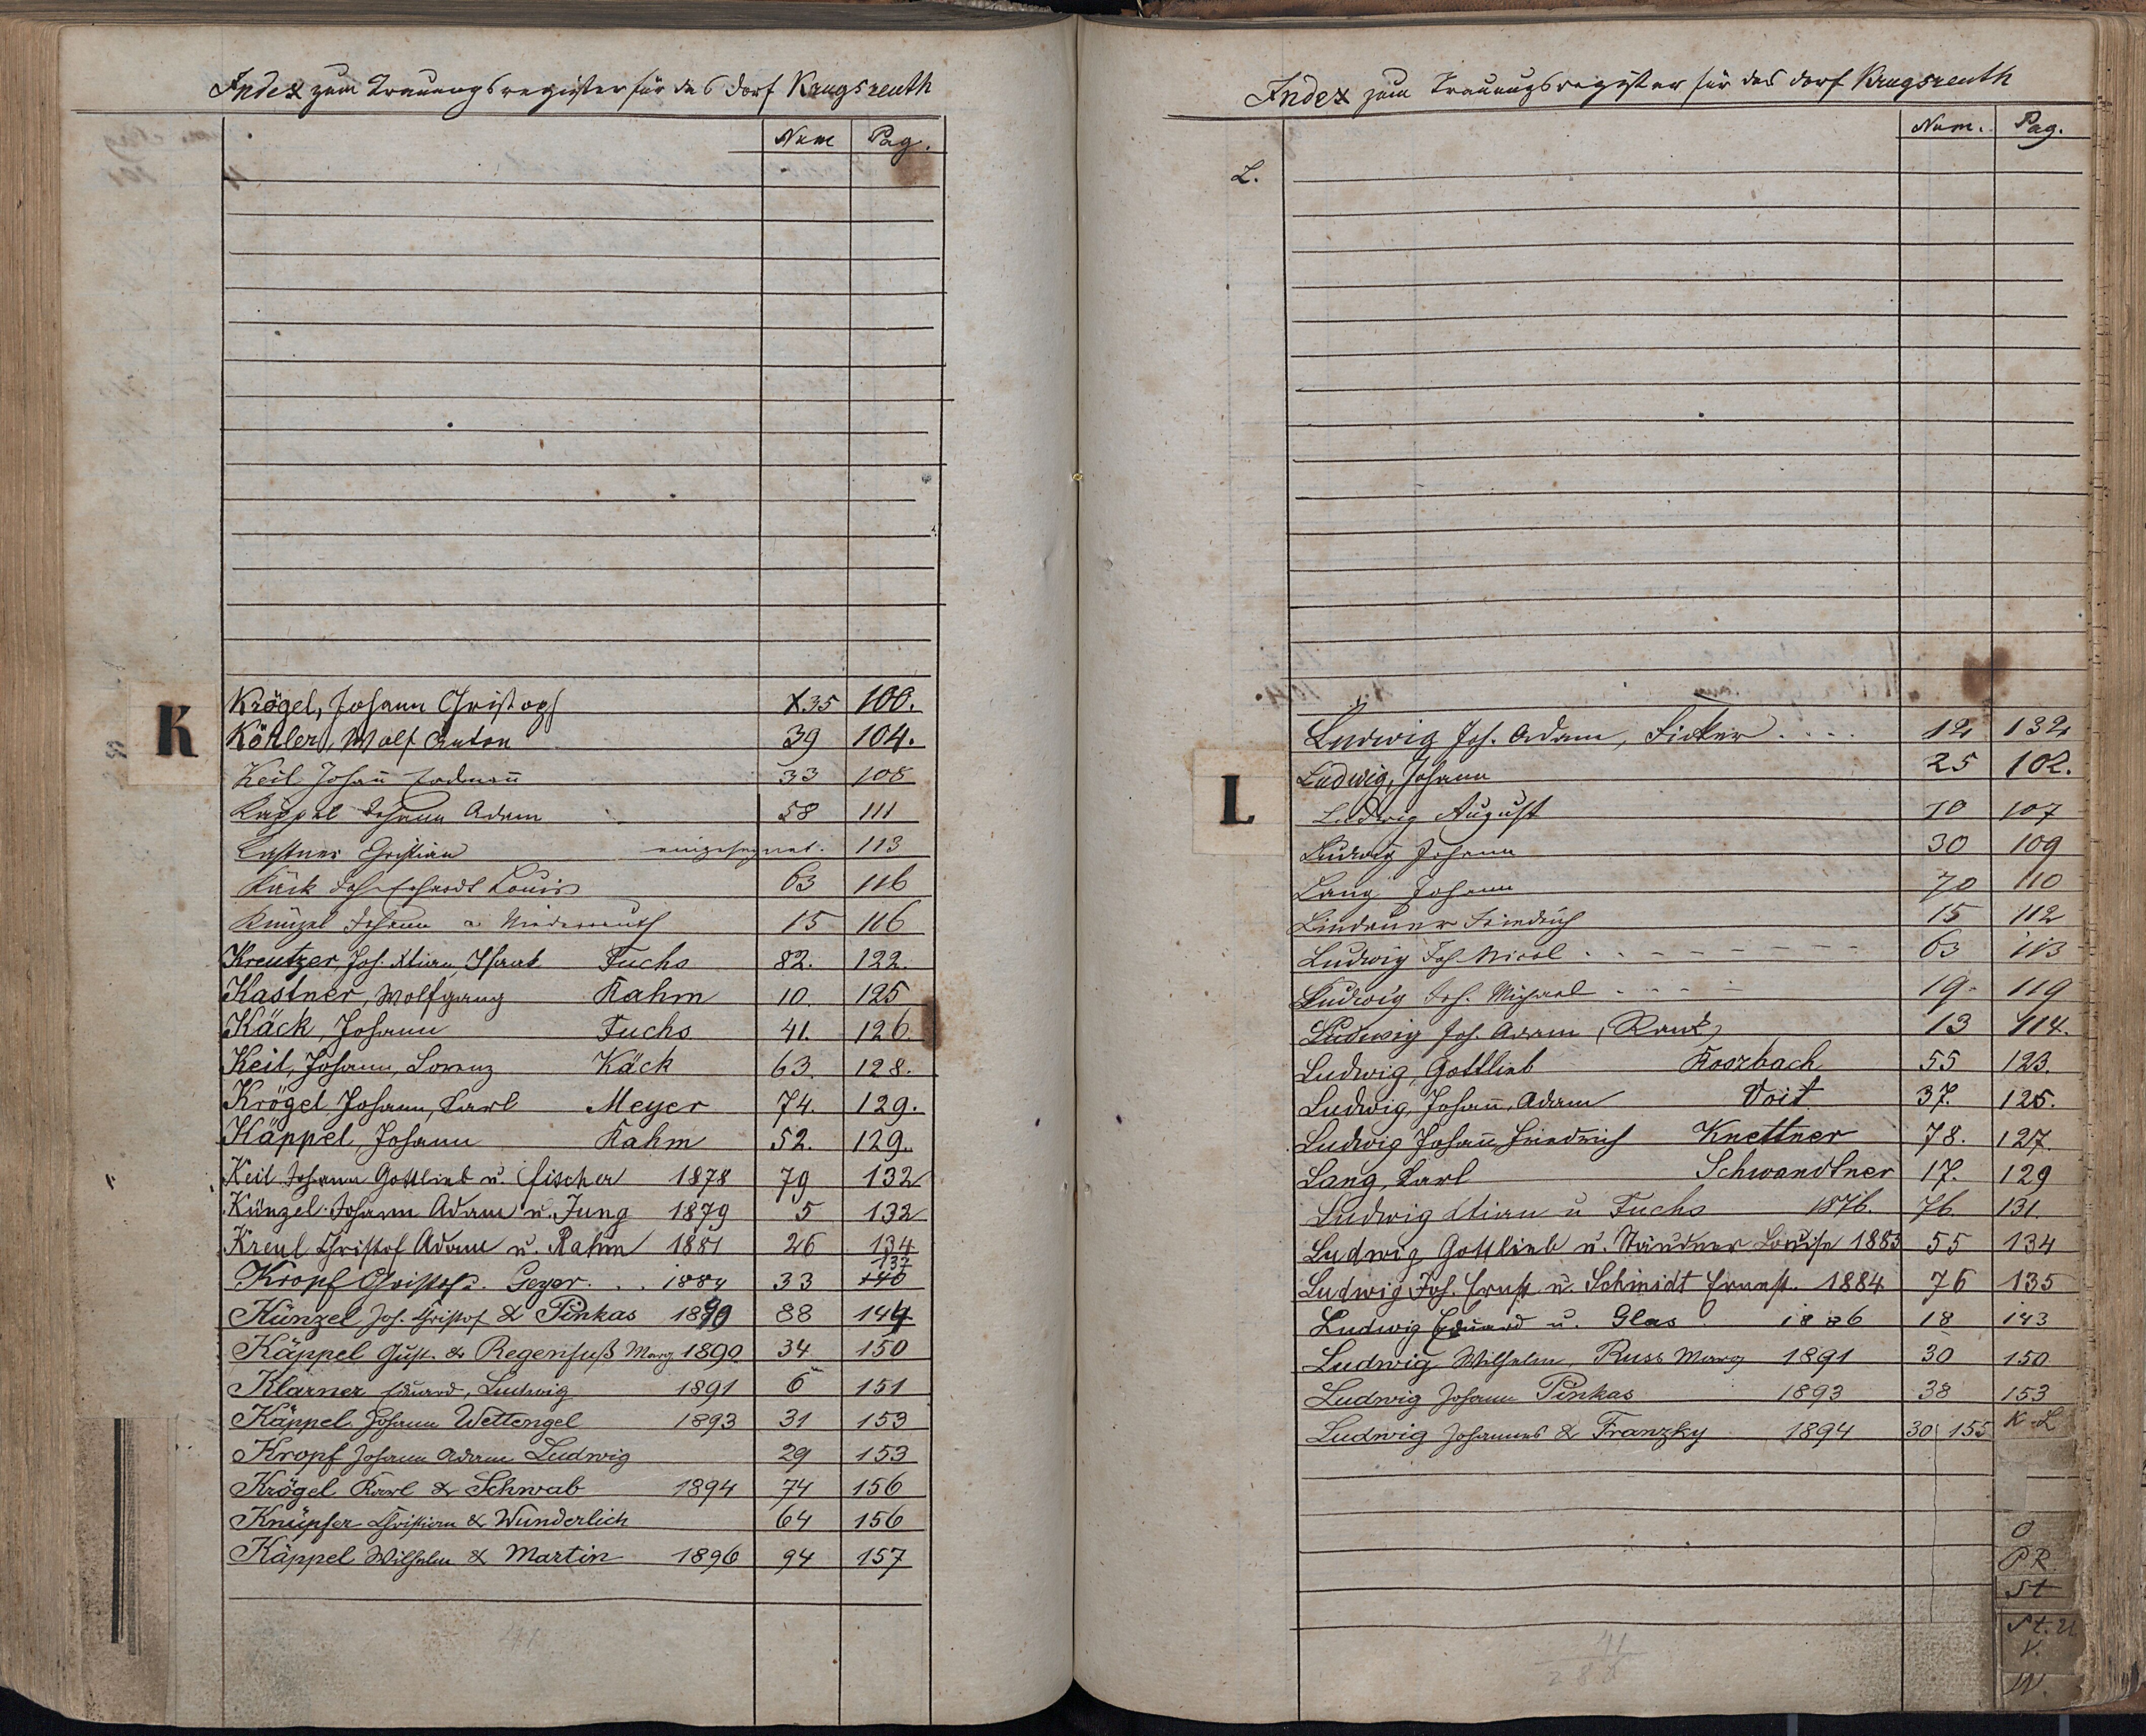 Index zum Trauungsregister für das Dorf Krugsreuth
Num Pag.
K
Krögel, Johann Christoph 35 100.
Köhler, Wolf Anton 39 104.
Keil Johañ Erdmañ 33 108
Käppel Johann Adam 58 111
Kastner Christian eingesegnet. 113
Käck Joh. Erhardt Louis 63 116
Künzel Johann a. Niederreuth 15 116
Kreutzer, Joh. Xtian, Fuchs 82. 122.
Kastner, Wolfgang Rahm 10. 125
Käck, Johann Fuchs 41. 126.
Keil, Johann, Lorenz Käck 63. 128.
Krögel Johann, Karl Meyer 74. 129.
Käppel, Johann Rahm 52. 129.
Keil Johann Gottlieb u. Fischer 1878 79 132
Künzel Johann Adam u. Jung 1879 5 132
Kreul Christof Adam u. Rahm 1881 26 134
137
Kropf Christof u. Geyer. . . 1884 33 140
Künzel Joh. Christof & Pinkas 1890 88 149
Käppel Gust. & Regenfuß Marg 1890 34 150
Klarner Eduard, Ludwig 1891 6 151
Käppel Johann Wettengel 1893 31 153
Kropf Johann Adam Ludwig 29 153
Krögel Karl & Schwab 1894 74 156
Knüpfer Christian & Wunderlich 64 156
Käppel Wilhelm & Martin 1896 94 157
41
Index zum Trauungsregister für das Dorf Krugsreuth
Num. Pag.
L.
L
Ludwig Joh. Adam, Ficker . . . . 12 132
Ludwig, Johann 25 102.
Ludwig August 70 107
Ludwig Johann 30 109
Lang Johann 70 110
Lindauer Friedrich 15 112
Ludwig Joh. Nicol 63 113
Ludwig Joh. Michael 19 119
Ludwig Joh. Adam (Rank) 13 114.
Ludwig, Gottlieb Korzbach 55 123.
Ludwig, Johañ, Adam Voit 37. 125.
Ludwig Johañ Friedrich Knettner 78. 127.
Lang, Karl Schwandtner 17. 129
Ludwig Xtian u Fuchs 1876. 76. 131.
Ludwig Gottlieb u. Stäudner Louise 1883 55 134
Ludwig Joh. Ernst u. Schmidt Ernest. 1884 76 135
Ludwig Eduard u. Glas 1886 18 143
Ludwig Wilhelm, Russ Marg 1891 30 150
Ludwig Johann Pinkas 1893 38 153
Ludwig Johannes & Franzky 1894 30 155
K-L
O
P R
St
St. U
V.
W.
41